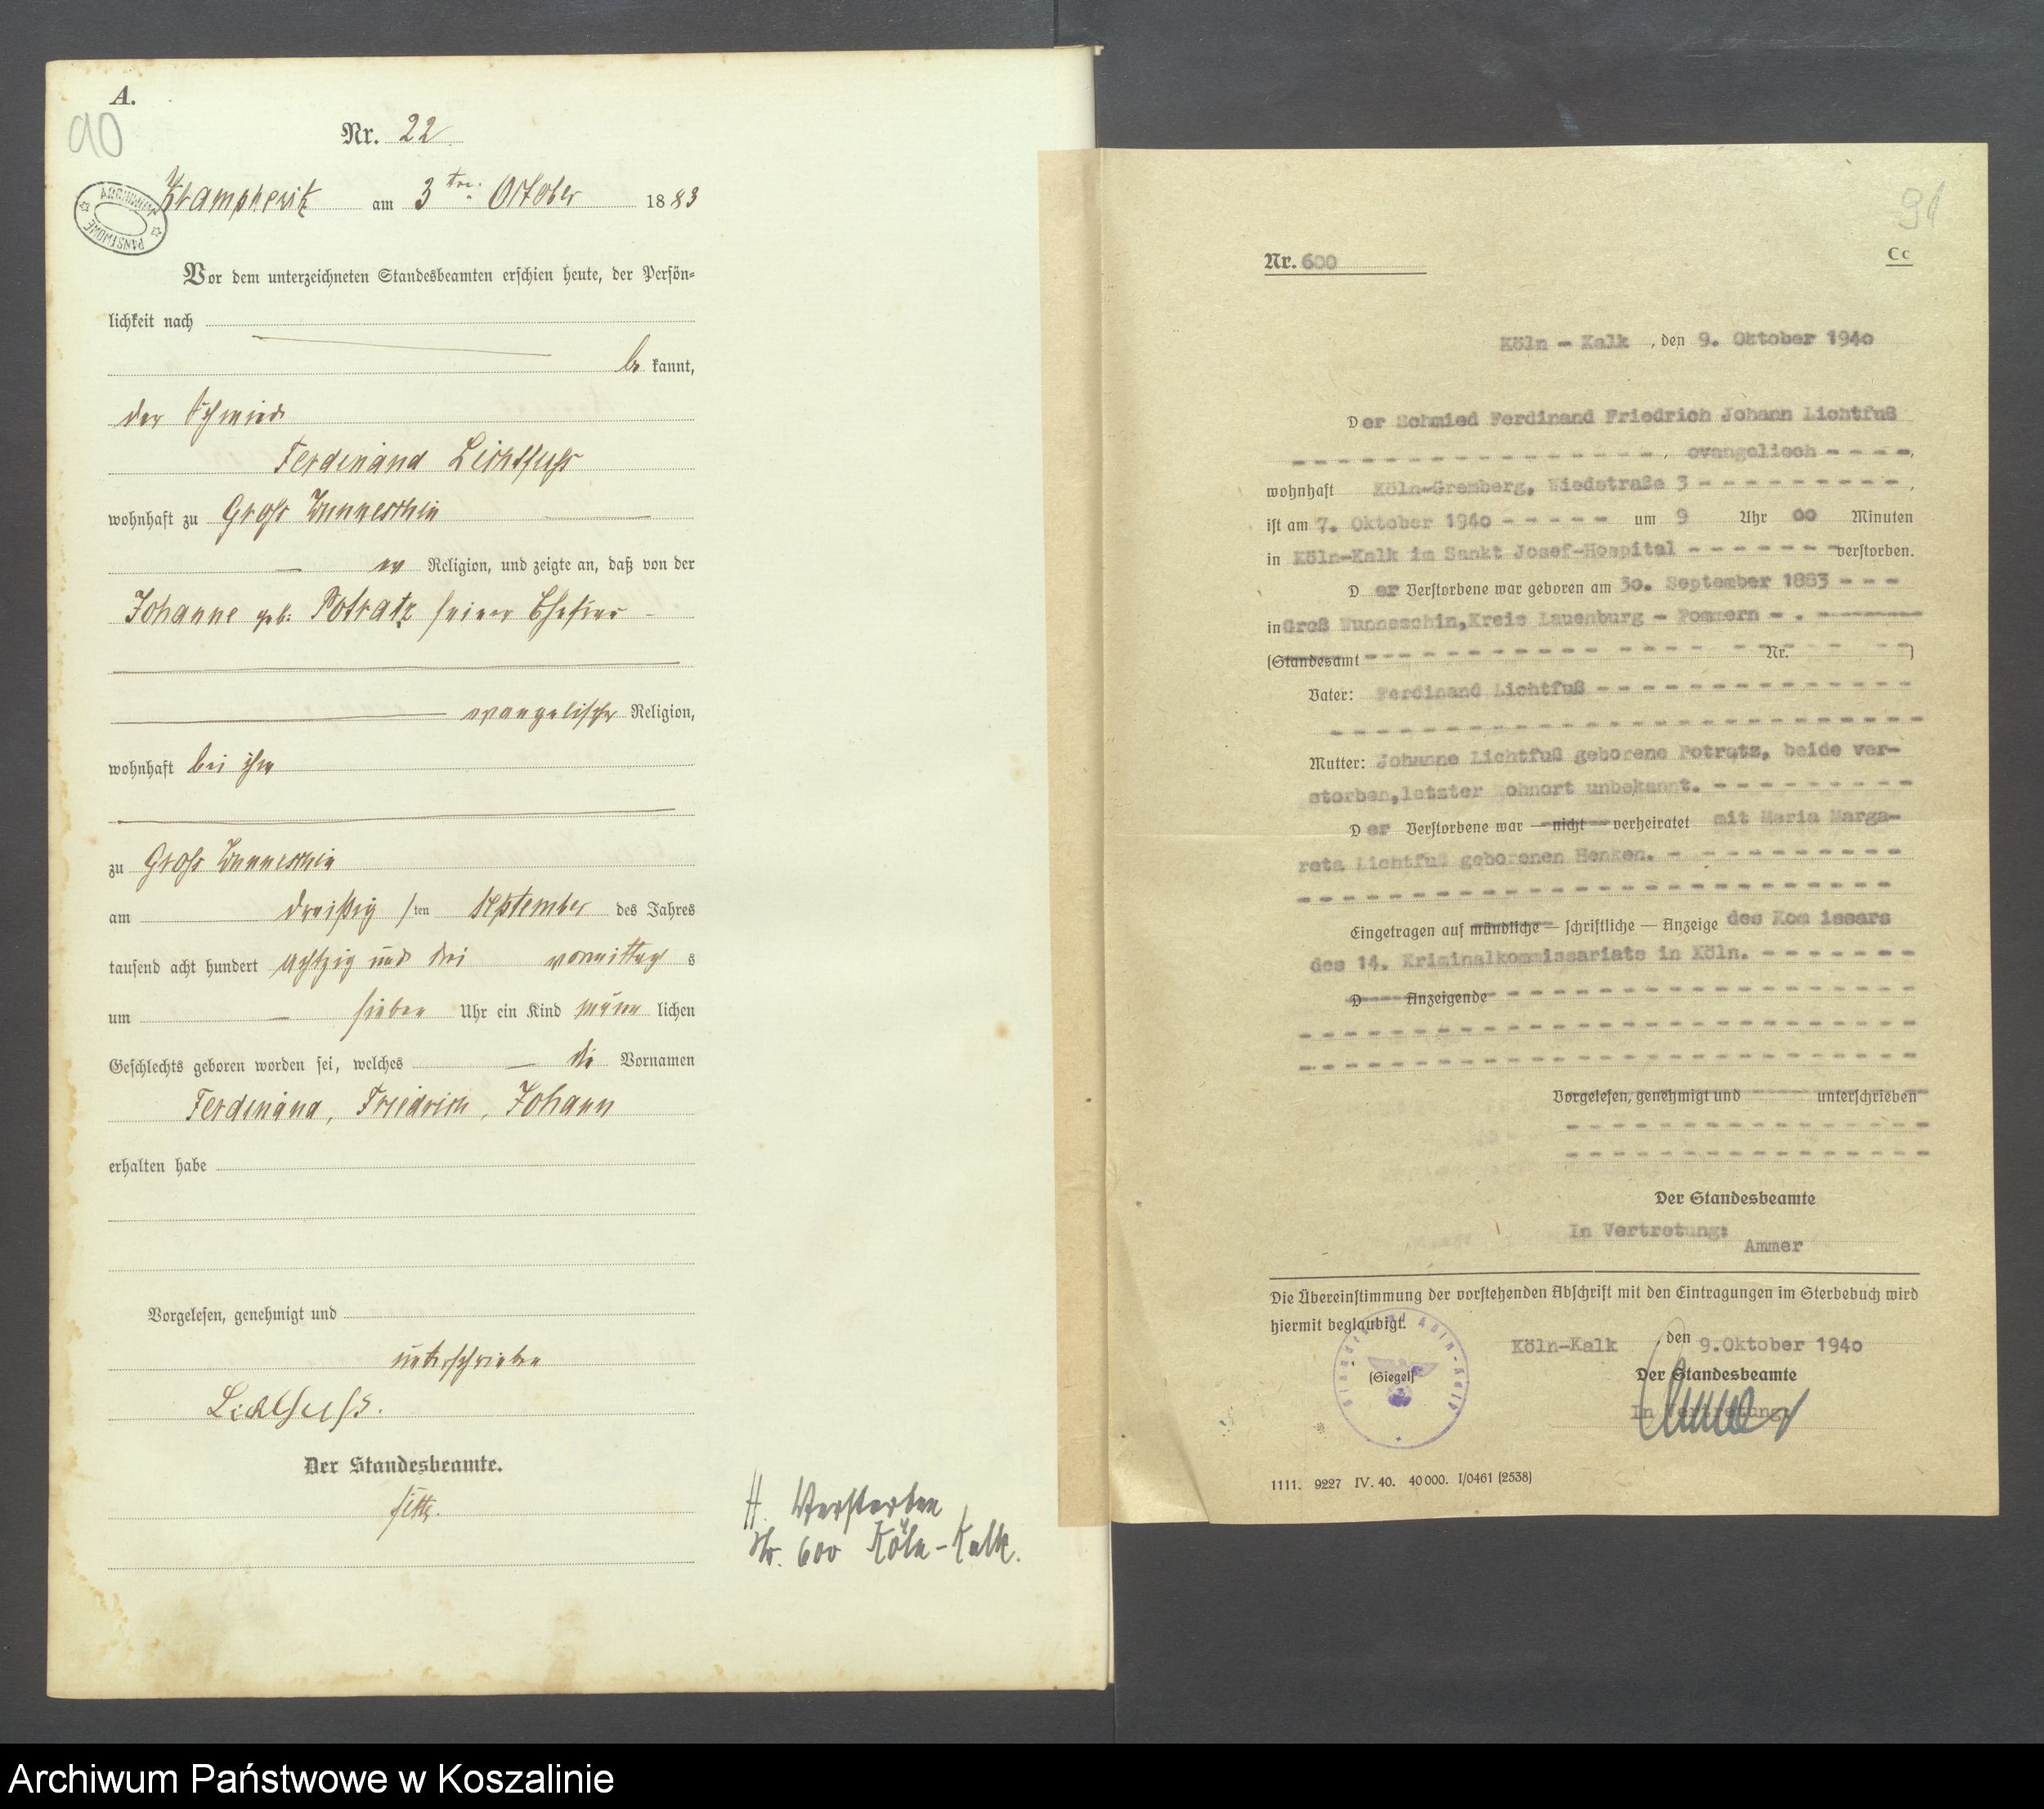 A.
90
Nr. 22
ARCHIWUM PAŃSTWOWE
Krampkewitz am 3ten October 1883
Vor dem unterzeichneten Standesbeamten erschien heute, der Persön-
lichkeit nach
be kannt,
der Schmied
Ferdinand Lichtfuss
wohnhaft zu Gross Wunneschin
ev Religion, und zeigte an, daß von der
Johanne geb. Potratz seiner Ehefrau
evangelischer Religion,
wohnhaft bei ihm
zu Gross Wunneschin
am dreißig sten September des Jahres
tausend acht hundert achtzig und drei vormittag s
um sieben Uhr ein Kind männ lichen
Geschlechts geboren worden sei, welches die Vornamen
Ferdinand, Friedrich, Johann
erhalten habe
Vorgelesen, genehmigt und
unterschrieben
Lichtfuss.
Der Standesbeamte.
H. Verstorben
Nr. 600 Köln-Kalk.
91
Nr. 600
Cc
Köln - Kalk, den 9. Oktober 1940
Der Schmied Ferdinand Friedrich Johann Lichtfuß
- - - - - - - - - - - - - - - -, evangelisch - - - -,
wohnhaft Köln-Gremberg, Wiedstraße 3 - - - - - - - - - ,
ist am 7. Oktober 1940 - - - - - um 9 Uhr 00 Minuten
in Köln-Kalk im Sankt Josef-Hospital - - - - - - - verstorben.
D er Verstorbene war geboren am 30. September 1883 - - -
in Groß Wunneschin, Kreis Lauenburg - Pommern - . - - - -
(Standesamt - - - - - - - - - - - - - - Nr. - - -)
Vater: Ferdinand Lichtfuß - - - - - - - - - - - - - -
- - - - - - - - - - - - - - - - - - - - - - - - - -
Mutter: Johanne Lichtfuß geborene Potratz, beide ver-
storben, letzter Wohnort unbekannt. - - - - - - - - -
D er Verstorbene war — nicht — verheiratet mit Maria Marga-
reta Lichtfuß geborenen Henken. - - - - - - - - - -
- - - - - - - - - - - - - - - - - - - - - - - - - -
Eingetragen auf mündliche — schriftliche — Anzeige des Kom issars
des 14. Kriminalkommissariats in Köln. - - - - - - -
D Anzeigende - - - - - - - - - - - - - - - - - -
- - - - - - - - - - - - - - - - - - - - - - - - - -
- - - - - - - - - - - - - - - - - - - - - - - - - -
Vorgelesen, genehmigt und unterschrieben
- - - - - - - - - - - - - - - -
- - - - - - - - - - - - - - - -
Der Standesbeamte
In Vertretung:
Ammer
Die Übereinstimmung der vorstehenden Abschrift mit den Eintragungen im Sterbebuch wird
hiermit beglaubigt.
Köln-Kalk, den 9.Oktober 1940
Der Standesbeamte
(Siegel)
Standesamt Köln-Kalk
In Vertretung:
Ammer
1111. 9227 IV. 40. 40000. I/0461 (2538)
Archiwum Państwowe w Koszalinie